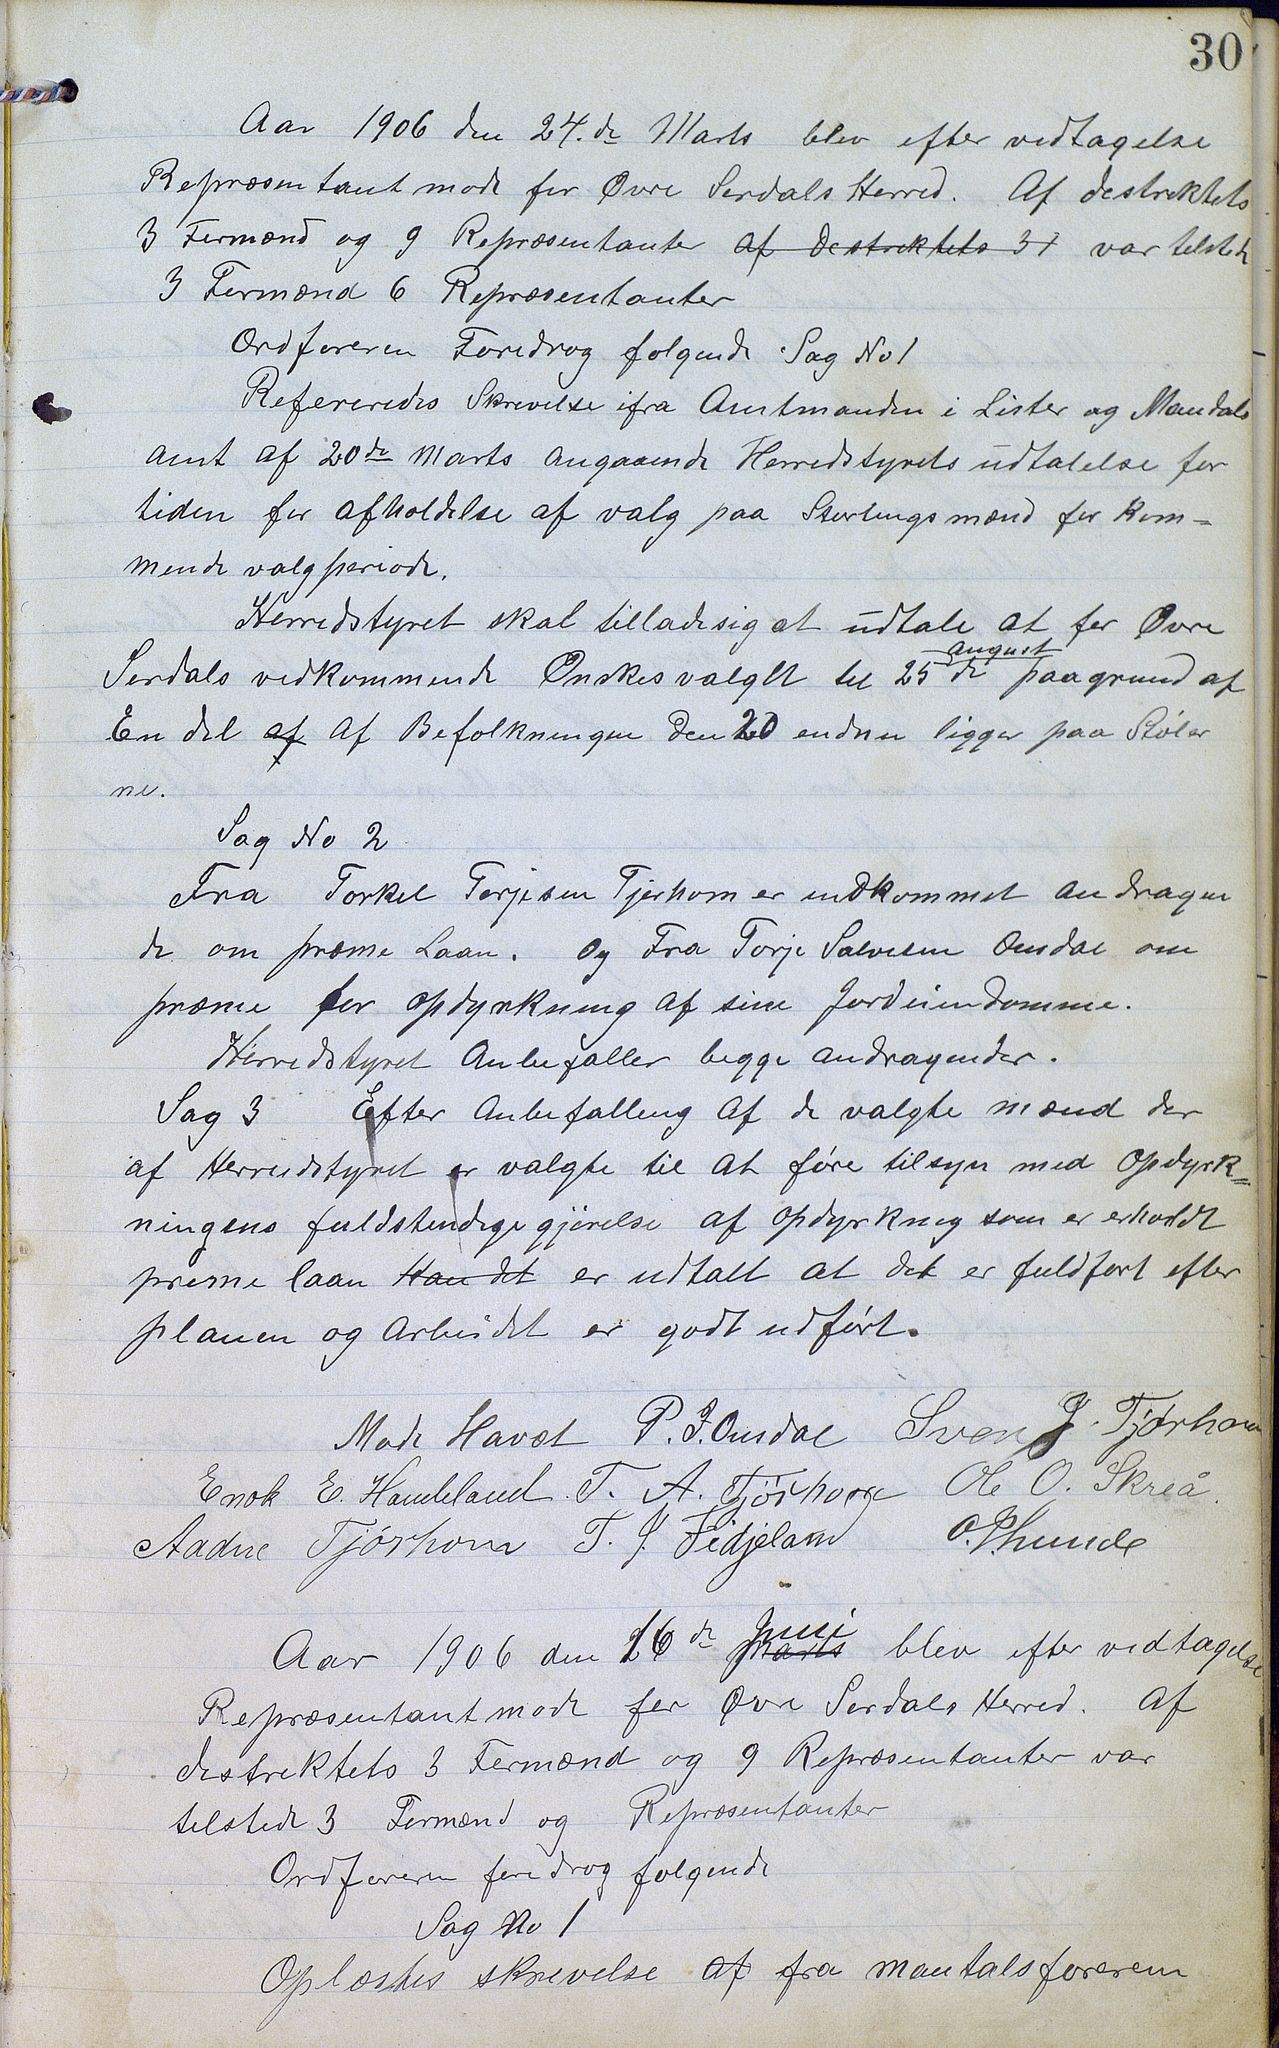 30
Aar 1906 den 24.de Marts blev efter vedtagelse
Repræsentant mode for Øvre Serdals Herred. Af destrektets
3 Formænd og 9 Repræsentanter af destrektets 3 var telstede
3 Formænd 6 Repræsentanter
Ordføreren Foredrog folgende Sag No 1
Refereredes Skrevelse ifra Amtmanden i Lister og Mandals
amt af 20de Marts angaaende Herredstyrets udtalelse for
tiden for afholdelse af valg paa Stortingsmænd for kom-
mende valgperiode.
Herredstyret skal tilladesig at udtale at for Øvre
august
Serdals vedkommende Ønskes valglt tel 25 de paagrund af
En del af Af Befolkningen Den 20 endnu ligger paa Stöler
ne.
Sag No 2
Fra Torkel Terjesen Tjerhom er indkommet andragen
de om præme Laan. Og Fra Torje Salvesen Omdal om
præme for opdyrkning af sine Jordeiendomme.
Herredstyret Anbefaller begge andragender.
Sag 3 Efter Anbefalleng af de valgte mænd der
af Herredstyret er valgte til at føre tilsyn med Opdyrk=
ningens fuldstendigegjørelse af opdyrkning som er erholdt
preme laan Han det er udtalt at det er fuldfort efter
planen og Arbeidet er godt udført.
Mode Hævet P. J. Omdal Sven J. Tjørhom
Enok E. Haudeland T. A. Tjörhom Ole O. Skreå.
Aadne Tjörhom T. J. Fidjeland O. P. Lunde
Juni
Aar 1906 den 16 de Marts blev efter vedtagelse
Repræsentant mode for Øvre Serdals Herred. Af
destrektets 3 Formænd og 9 Repræsentanter var
telstede 3 Formænd og Repræsentanter
Ordføreren foredrog folgende
Sag No 1
Oplæstes skrevelse af fra mantalsforeren